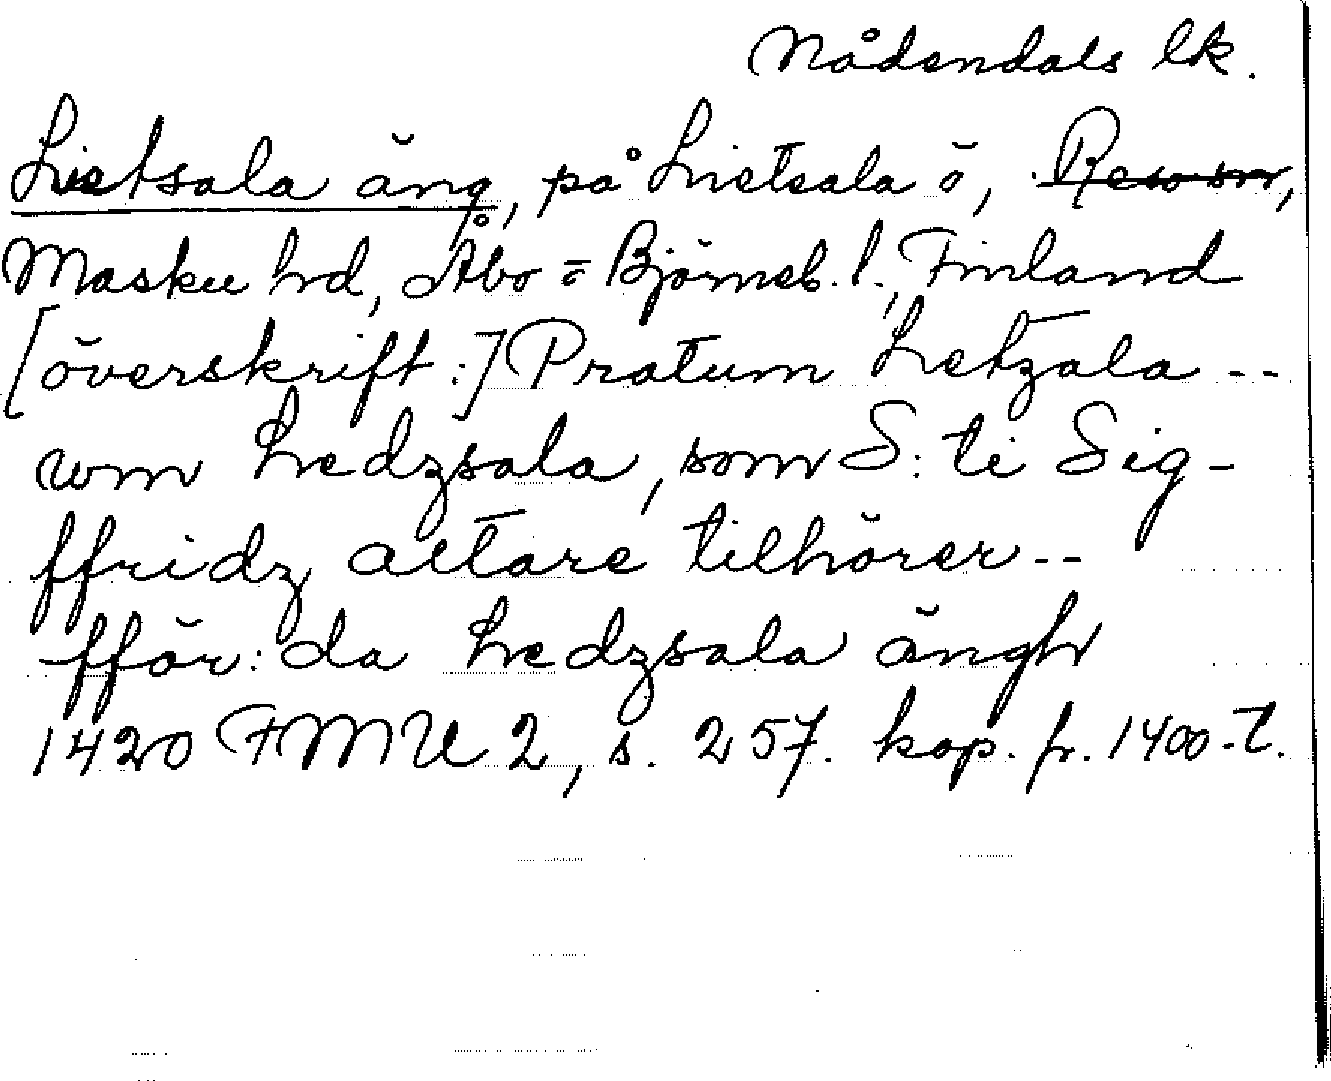 Nådendals lk.
Lietsala äng, på Lietsala ö, Reso sn,
Masku hd, Åbo o Björneb. l., Finland
[överskrift:] Pratum Letzala --
wm Ledzsala, som S:ti Sig-
ffridz altare tilhörer --
fför:da Ledzsala ängh
1420 FMU 2, s. 257. kop. fr. 1400-t.